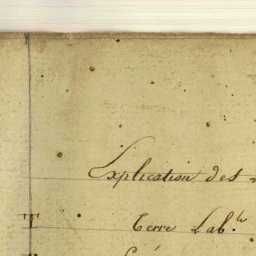 Explication des
T Terre Lab.le